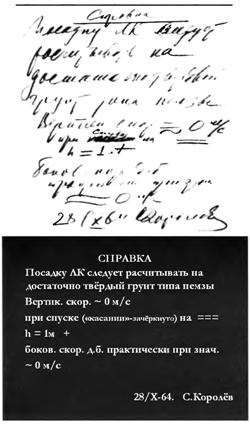 Справка
Посадку ЛК следует
расчитывать на
достаточно твёрдый
грунт типа пемзы
Вертик. скор. ≈ 0 м/с
при спуске на
h = 1м +
боков. скор. д.б.
≈ 0 м/с
28/X-64 Королёв
СПРАВКА
Посадку ЛК следует расчитывать на
достаточно твёрдый грунт типа пемзы
Вертик. скор. ~ 0 м/с
при спуске («касании»-зачёркнуто) на ===
h = 1м +
боков. скор. д.б. практически при знач.
~ 0 м/с
28/X-64. С.Королёв